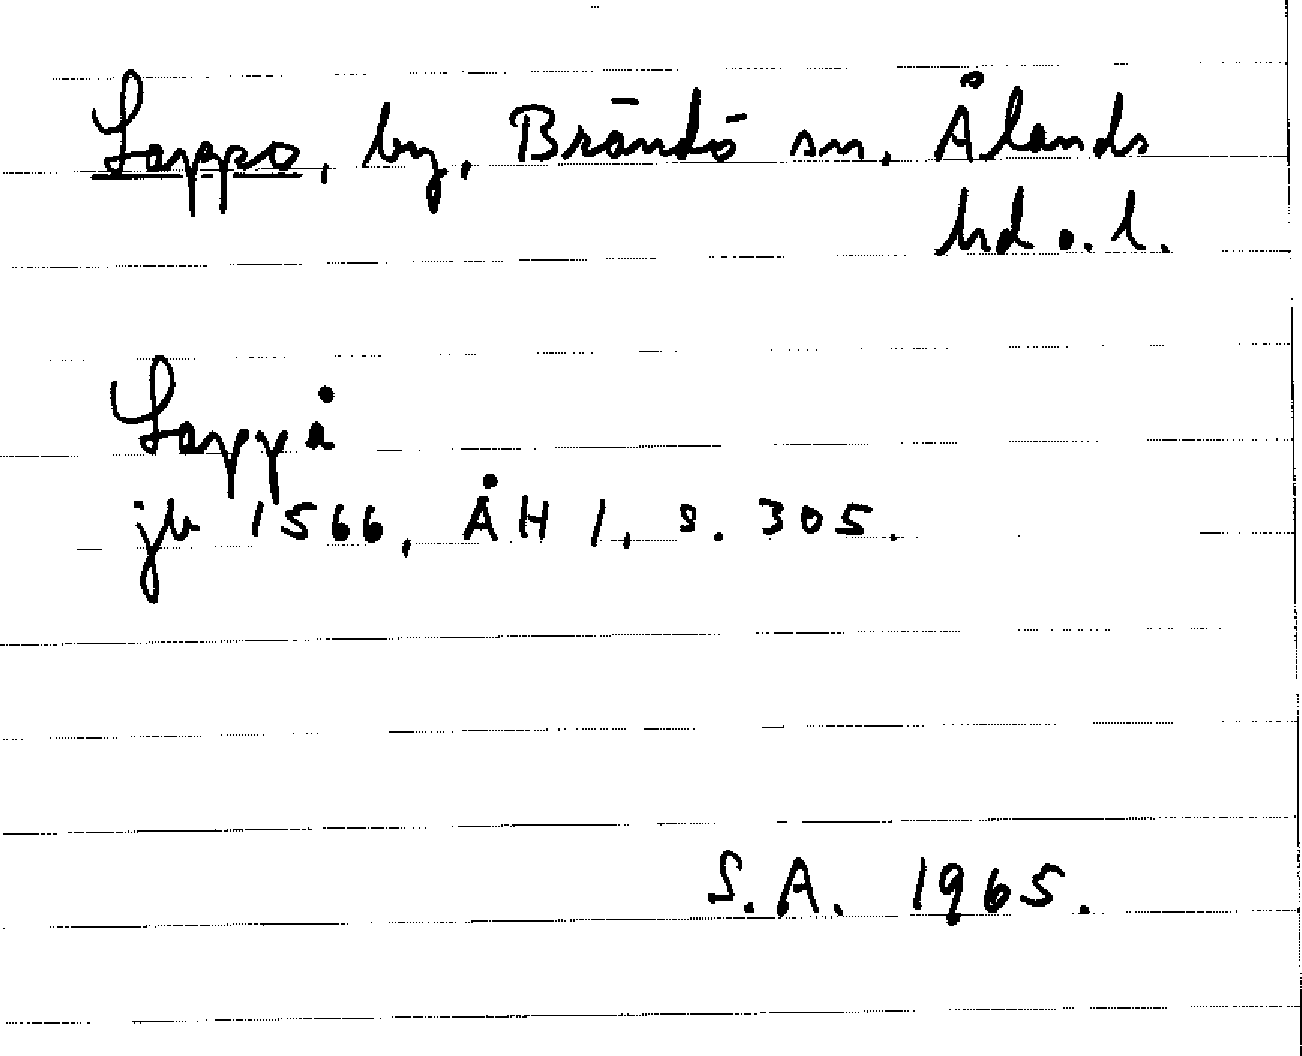 Lappo, by, Brändö sn, Ålands
hd o. l.
Lappå
jb 1566, ÅH 1, s. 305.
S.A. 1965.